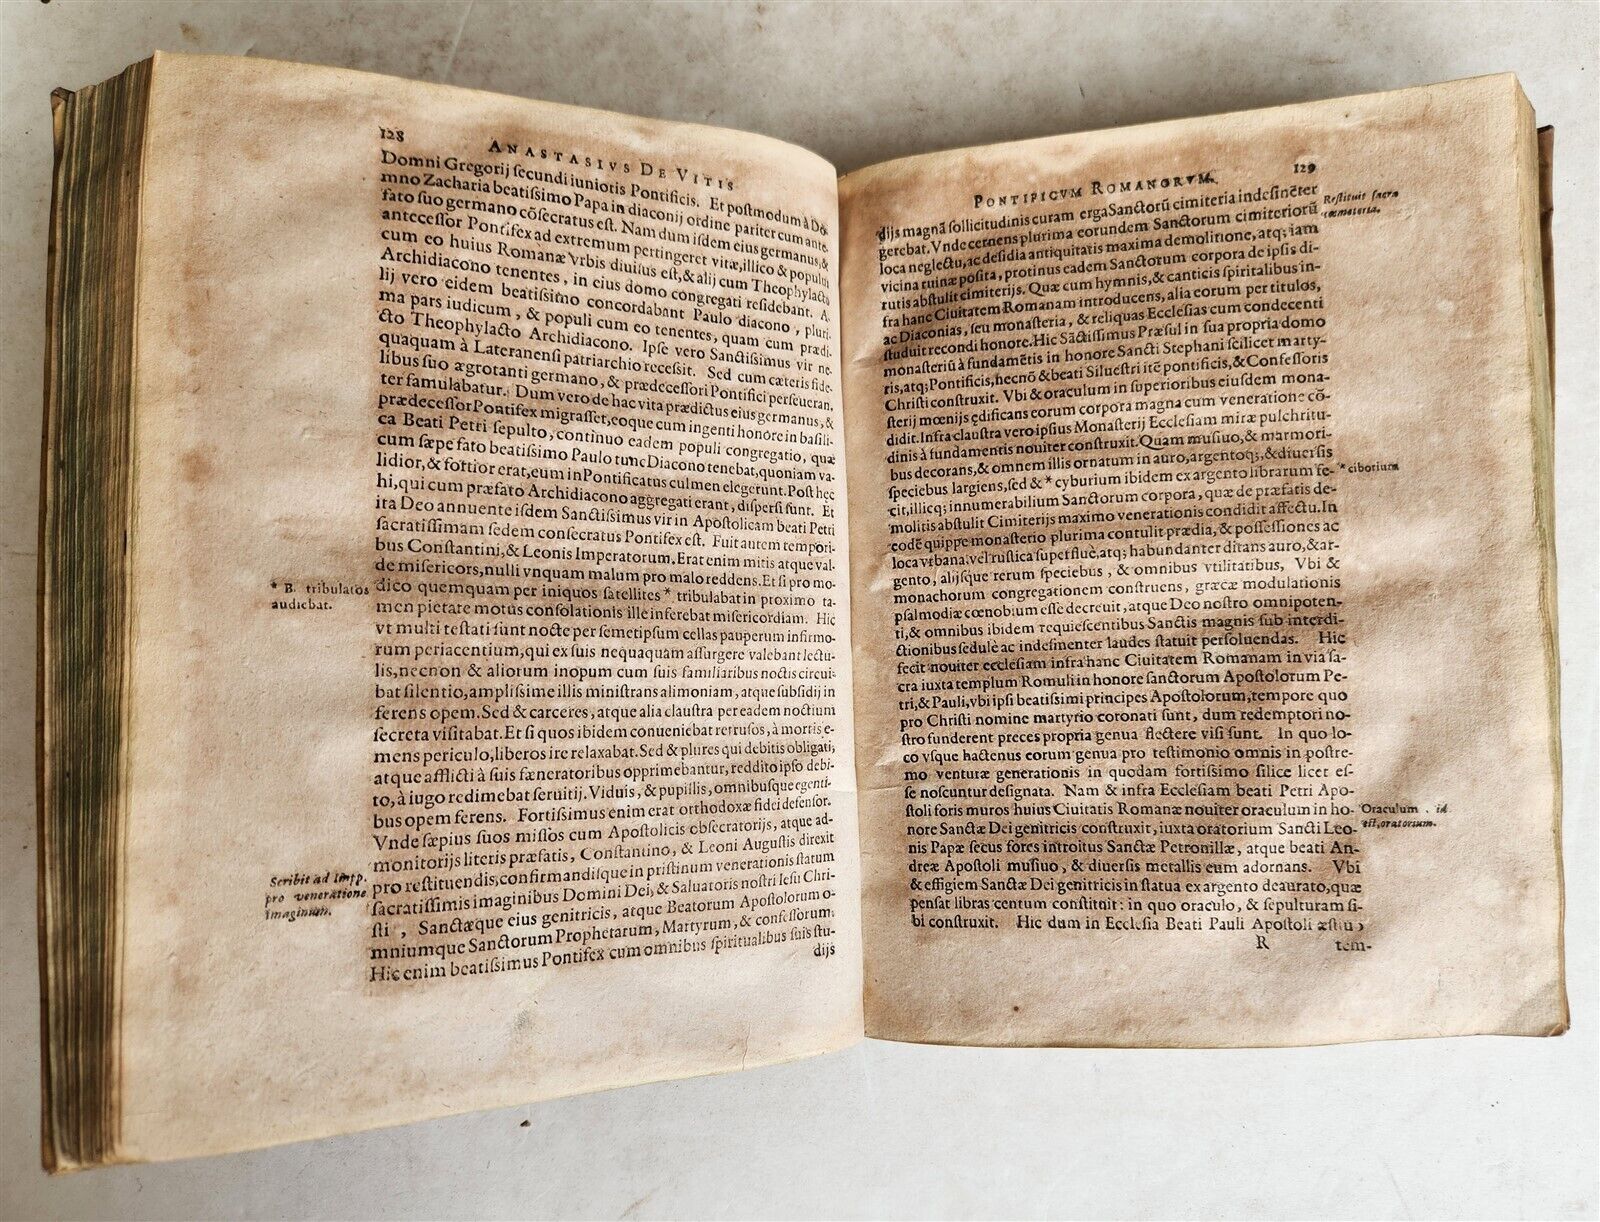 128
ANASTASIVS DE VITIS
Domni Gregorij ſecundi iunioris Pontificis. Et poſtmodum à Do-
mno Zacharia beatiſſimo Papa in diaconij ordine pariter cum ante
fato ſuo germano cōſecratus eſt. Nam dum iſdem eius germanus, &
anteceſſor Pontifex ad extremum pertingeret vitæ, illico & populus
cum eo huius Romanæ Vrbis diuiſus eſt, & alij cum Theophylacto
Archidiacono tenentes, in eius domo congregati reſidebant. A.
lij vero eidem beatiſſimo concordabant Paulo diacono, pluri.
ma pars iudicum, & populi cum eo tenentes, quam cum prædi.
cto Theophylacto Archidiacono. Ipſe vero Sanctiſſimus vir ne.
quaquam à Lateranenſi patriarchio receſſit. Sed cum cæteris fide.
libus ſuo ægrotanti germano, & prædeceſſori Pontifici perſeueran.
ter famulabatur. Dum vero de hac vita prædictus eius germanus, &
prædeceſſor Pontifex migraſſet, eoque cum ingenti honore in baſili-
ca Beati Petri ſepulto, continuo eadem populi congregatio, quæ
cum ſæpe fato beatiſſimo Paulo tunc Diacono tenebat, quoniam va-
lidior, & fortior erat, eum in Pontificatus culmen elegerunt. Poſt hęc
hi, qui cum præfato Archidiacono aggregati erant, diſperſi ſunt. Et
ita Deo annuente iſdem Sanctiſſimus vir in Apoſtolicam beati Petri
ſacratiſſimam ſedem conſecratus Pontifex eſt. Fuit autem tempori-
bus Conſtantini, & Leonis Imperatorum. Erat enim mitis atque val-
de miſericors, nulli vnquam malum pro malo reddens. Et ſi pro mo-
dico quemquam per iniquos ſatellites * tribulabat in proximo ta-
men pietate motus conſolationis ille inferebat miſericordiam. Hic
vt multi teſtati ſunt nocte per ſemetipſum cellas pauperum infirmo-
rum periacentium, qui ex ſuis nequaquam aſſurgere valebant lectu-
lis, necnon & aliorum inopum cum ſuis familiaribus noctis circui-
bat ſilentio, ampliſſime illis miniſtrans alimoniam, atque ſubſidij in
ferens opem. Sed & carceres, atque alia clauſtra per eadem noctium
ſecreta viſitabat. Et ſi quos ibidem conueniebat retruſos, à mortis e-
mens periculo, liberos ire relaxabat. Sed & plures qui debitis obligati,
atque afflicti à ſuis fæneratoribus opprimebantur, reddito ipſo debi-
to, à iugo redimebat ſeruitij. Viduis, & pupillis, omnibusque egenti-
bus opem ferens. Fortiſſimus enim erat orthodoxæ fidei defenſor.
Vnde ſæpius ſuos miſſos cum Apoſtolicis obſecratorijs, atque ad-
monitorijs literis præfatis, Conſtantino, & Leoni Auguſtis direxit
pro reſtituendis, confirmandiſque in priſtinum venerationis ſtatum
ſacratiſſimis imaginibus Domini Dei, & Saluatoris noſtri Ieſu Chri-
ſti, Sanctæque eius genitricis, atque Beatorum Apoſtolorum o-
mniumque Sanctorum Prophetarum, Martyrum, & confeſſorum.
Hic enim beatiſſimus Pontifex cum omnibus ſpiritualibus ſuis ſtu-
dijs
* B. tribulatos
audiebat.
Scribit ad Impp.
pro veneratione
imaginum.
129
PONTIFICVM ROMANORVM.
dijs magnā ſollicitudinis curam erga Sanctorū cimiteria indeſinēter
gerebat. Vnde cernens plurima eorundem Sanctorum cimiteriorū
loca neglectu, ac deſidia antiquitatis maxima demolitione, atq; iam
vicina ruinæ poſita, protinus eadem Sanctorum corpora de ipſis di-
rutis abſtulit cimiterijs. Quæ cum hymnis, & canticis ſpiritalibus in-
fra hanc Ciuitatem Romanam introducens, alia eorum per titulos,
ac Diaconias, ſeu monaſteria, & reliquas Eccleſias cum condecenti
ſtuduit recondi honore. Hic Sāctiſſimus Præſul in ſua propria domo
monaſteriū à fundamētis in honore Sancti Stephani ſcilicet marty-
ris, atq; Pontificis, hecnō & beati Silueſtri itē pontificis, & Confeſſoris
Chriſti conſtruxit. Vbi & oraculum in ſuperioribus eiuſdem mona-
ſterij mœnijs ędificans eorum corpora magna cum veneratione cō-
didit. Infra clauſtra vero ipſius Monaſterij Eccleſiam miræ pulchritu-
dinis à fundamentis nouiter conſtruxit. Quam muſiuo, & marmori-
bus decorans, & omnem illis ornatum in auro, argentoq;, & diuerſis
ſpeciebus largiens, ſed & * cyburium ibidem ex argento librarum fe-
cit, illicq; innumerabilium Sanctorum corpora, quæ de præfatis de-
molitis abſtulit Cimiterijs maximo venerationis condidit affectu. In
eodē quippe monaſterio plurima contulit prædia, & poſſeſſiones ac
loca vrbana vel ruſtica ſuperfluè, atq; habundanter ditans auro, & ar-
gento, alijſque rerum ſpeciebus, & omnibus vtilitatibus, Vbi &
monachorum congregationem conſtruens, græcæ modulationis
pſalmodiæ cœnobium eſſe decreuit, atque Deo noſtro omnipoten-
ti, & omnibus ibidem requieſcentibus Sanctis magnis ſub interdi-
ctionibus ſedulè ac indeſinenter laudes ſtatuit perſoluendas. Hic
fecit nouiter eccleſiam infra hanc Ciuitatem Romanam in via ſa-
cra iuxta templum Romuli in honore ſanctorum Apoſtolorum Pe-
tri, & Pauli, vbi ipſi beatiſſimi principes Apoſtolorum, tempore quo
pro Chriſti nomine martyrio coronati ſunt, dum redemptori no-
ſtro funderent preces propria genua flectere viſi ſunt. In quo lo-
co vſque hactenus eorum genua pro teſtimonio omnis in poſtre-
mo venturæ generationis in quodam fortiſſimo ſilice licet eſ-
ſe noſcuntur deſignata. Nam & infra Eccleſiam beati Petri Apo-
ſtoli foris muros huius Ciuitatis Romanæ nouiter oraculum in ho-
nore Sanctæ Dei genitricis conſtruxit, iuxta oratorium Sancti Leo-
nis Papæ ſecus fores introitus Sanctæ Petronillæ, atque beati An-
dreæ Apoſtoli muſiuo, & diuerſis metallis eum adornans. Vbi
& effigiem Sanctæ Dei genitricis in ſtatua ex argento deaurato, quæ
penſat libras centum conſtituit: in quo oraculo, & ſepulturam ſi-
bi conſtruxit. Hic dum in Eccleſia Beati Pauli Apoſtoli æſtiuo
R tem-
Reſtituit ſacra
cœmeteria.
* ciborium
Oraculum, id
eſt, oratorium.